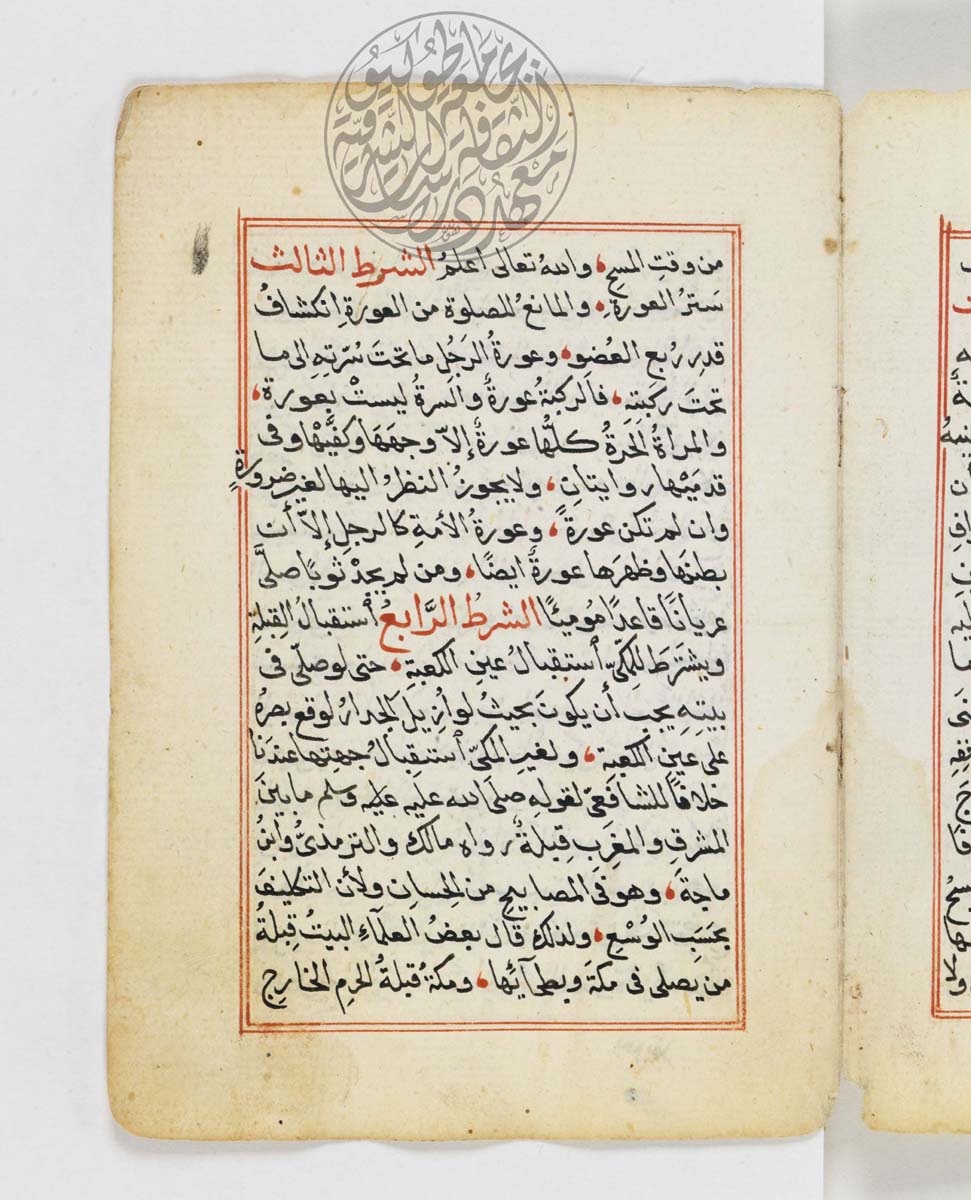 من وقتِ المسحِ، والله تعالى اعلمُ الشرط الثالث
سترُ العورةِ، والمانعُ للصلوة من العورةِ انكشافُ
قدرِ ربعِ العُضوِ، وعورةُ الرَجُلِ ما تحتَ سُرّتِهِ الى ما
تحتَ ركبَتِه، فالركبةُ عورةٌ والسرةُ ليستْ بعورة،
والمراةُ الحَرةُ كلُّها عورةٌ إلاّ وجهَهَا وكفَّيْها وفى
قدمَيْها روايتان، ولا يجوزُ النظرُ اليها لغير ضرورةٍ
وان لم تكن عورةً، وعورةُ الأمةِ كالرجلِ إلاّ أن
بطنَها وظهرَها عورةٌ ايضًا، ومن لم يجدْ ثوبًا صلَّى
عريانًا قاعدًا مُوميًا الشرطُ الرَّابعُ استقبالُ القِبلةِ
ويشترَط للمكّىِ استقبالُ عينِ الكعبةِ، حتى لو صلّى فى
بيتِهِ يجب أن يكونَ بحيثُ لو أزيلَ الجدارُ لوقع بصرهُ
على عينِ الكعبة، ولغيرِ المكّىِ استقبالُ جهتِها عندَنا
خلافًا للشافعىّ لقولهِ صلى الله عليه عليه وسلم ما بينَ
المشرقِ والمغربِ قِبلةٌ رواه مالك والترمذىُّ وابنُ
ماجةَ، وهو فى المصابيحِ من الحِسانِ ولأن التكليفَ
بحسَبِ الوُسْعِ، ولذلك قال بعضُ العلماءِ البيتُ قِبلةُ
من يصلى فى مكةَ وبطحآئِها، ومكةُ قبلةُ الحرمِ الخارجِ